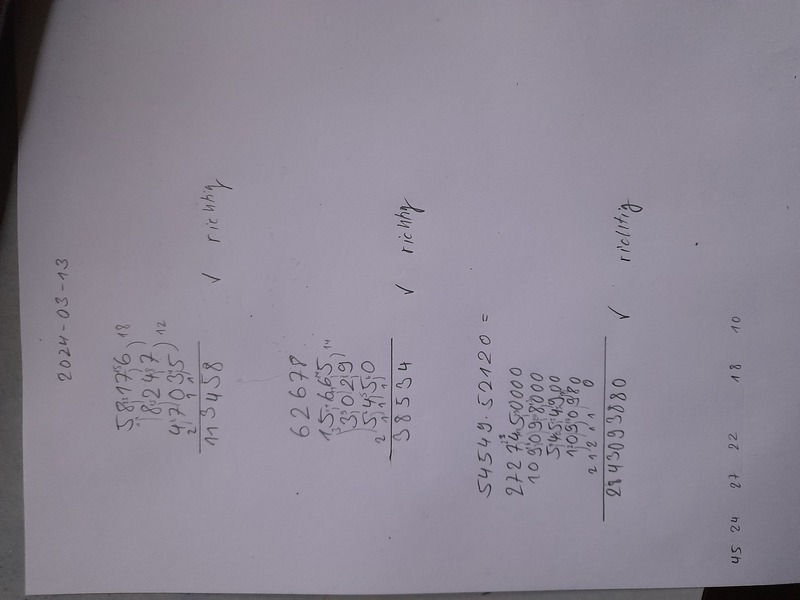 2024-03-13
58176
18
8247
12
47035
2 1 1
113458 ✓ richtig
62678
15665
14
3029
5450
2 1 1 1
38534 ✓ richtig
54549·52120 =
2727450000
109098000
5454900
1090980
0
2 1 2 1 1
2843093880 ✓ richtig
45 24 27 22 18 10